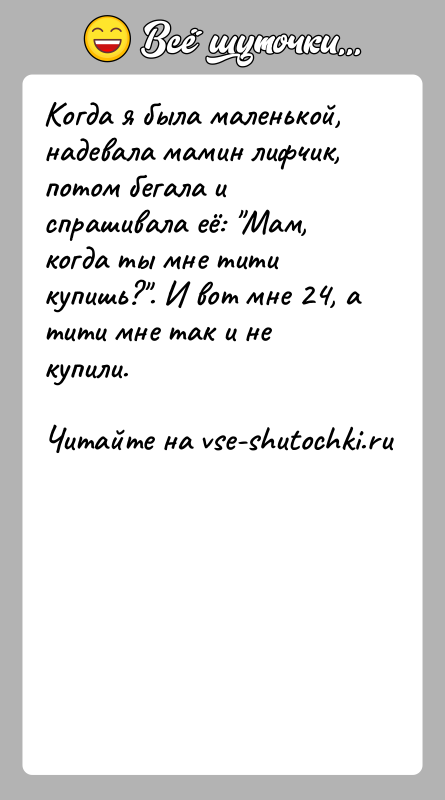 Всё шуточки...
Когда я была маленькой,
надевала мамин лифчик,
потом бегала и
спрашивала её: "Мам,
когда ты мне тити
купишь?". И вот мне 24, а
тити мне так и не
купили.
Читайте на vse-shutochki.ru